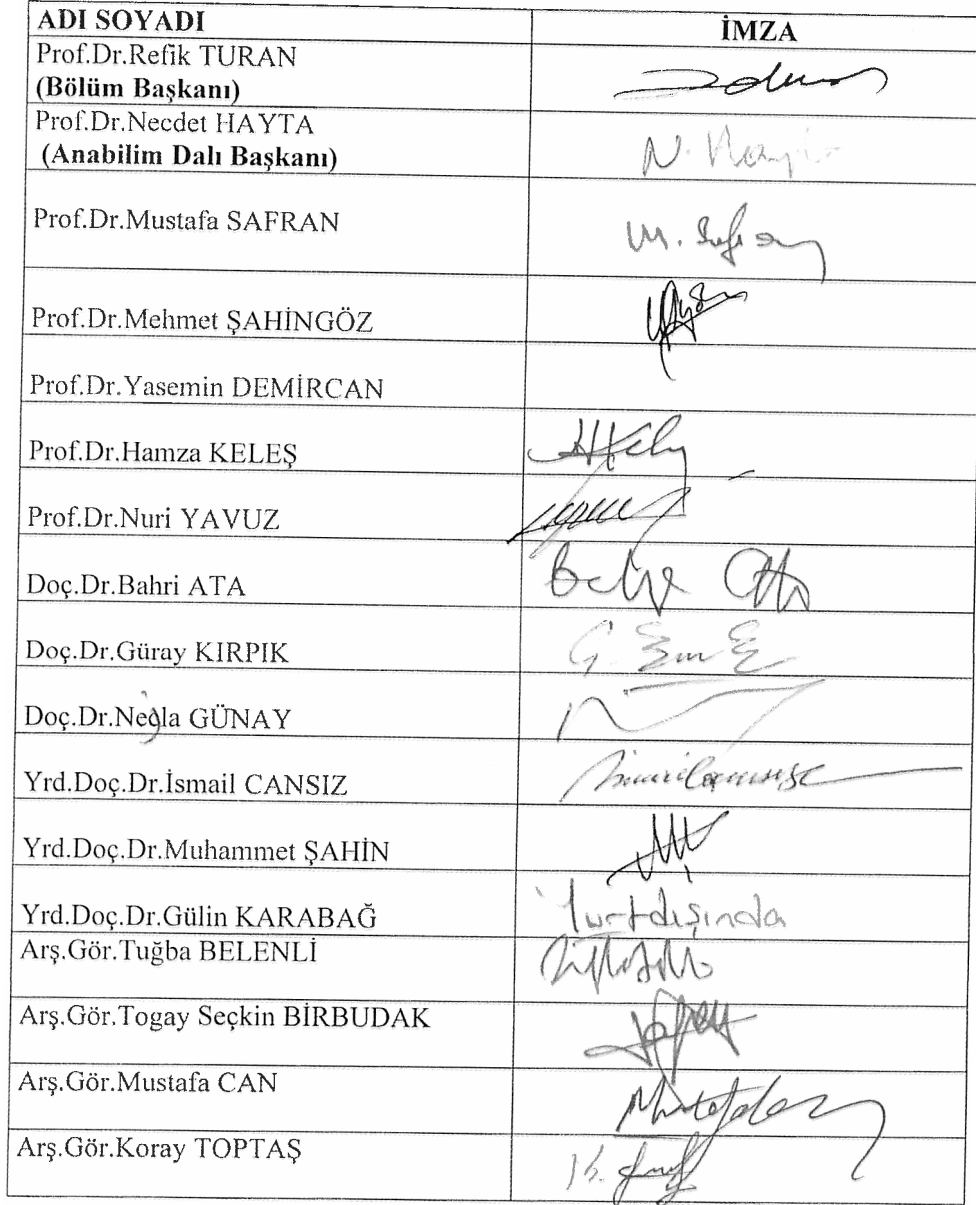 ADI SOYADI İMZA
Prof.Dr.Refik TURAN
(Bölüm Başkanı)
Prof.Dr.Necdet HAYTA N. Hayta
(Anabilim Dalı Başkanı)
Prof.Dr.Mustafa SAFRAN M. Safran
Prof.Dr.Mehmet ŞAHİNGÖZ
Prof.Dr.Yasemin DEMİRCAN
Prof.Dr.Hamza KELEŞ
Prof.Dr.Nuri YAVUZ
Doç.Dr.Bahri ATA
Doç.Dr.Güray KIRPIK
Doç.Dr.Necla GÜNAY
Yrd.Doç.Dr.İsmail CANSIZ
Yrd.Doç.Dr.Muhammet ŞAHİN
Yrd.Doç.Dr.Gülin KARABAĞ Yurtdışında
Arş.Gör.Tuğba BELENLİ
Arş.Gör.Togay Seçkin BİRBUDAK
Arş.Gör.Mustafa CAN
Arş.Gör.Koray TOPTAŞ